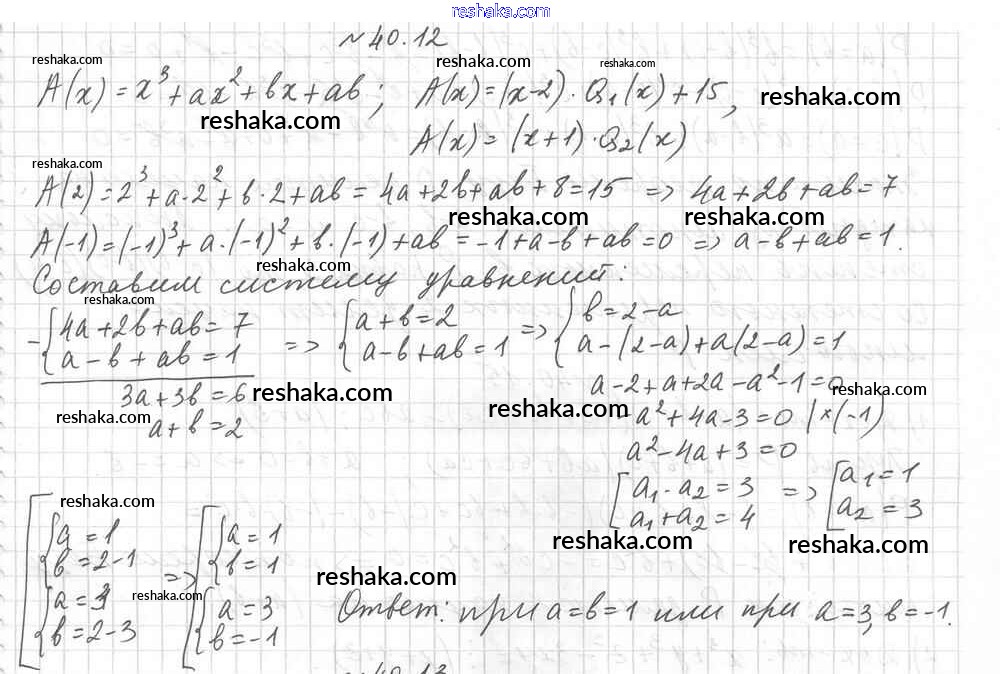 reshaka.com
№ 40.12
reshaka.com reshaka.com reshaka.com
A(x) = x³ + ax² + bx + ab; A(x) = (x-2) · Q₁(x) + 15, reshaka.com
reshaka.com A(x) = (x+1) · Q₂(x)
reshaka.com
A(2) = 2³ + a·2² + b·2 + ab = 4a + 2b + ab + 8 = 15 => 4a + 2b + ab = 7
reshaka.com reshaka.com
A(-1) = (-1)³ + a·(-1)² + b·(-1) + ab = -1 + a - b + ab = 0 => a - b + ab = 1.
reshaka.com
Составим систему уравнений:
reshaka.com
- { 4a + 2b + ab = 7 => { a + b = 2 => { b = 2 - a
a - b + ab = 1 a - b + ab = 1 a - (2-a) + a(2-a) = 1
3a + 3b = 6 reshaka.com a - 2 + a + 2a - a² - 1 = 0 reshaka.com
reshaka.com a + b = 2 reshaka.com - a² + 4a - 3 = 0 | ×(-1)
a² - 4a + 3 = 0
[ a₁ · a₂ = 3 => [ a₁ = 1
a₁ + a₂ = 4 a₂ = 3
reshaka.com reshaka.com reshaka.com
[ { a = 1 => [ { a = 1
b = 2-1 b = 1
reshaka.com reshaka.com
{ a = 3 { a = 3 Ответ: при a = b = 1 или при a = 3, b = -1.
b = 2-3 b = -1
№ 40.13